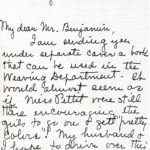 My dear Mr. Benjamin,
I am sending you
under separate cover a book
that can be used in the
Weaving Department. It
would almost seem as
if Miss were still
there encouraging the
girls to go on & get "pretty
colors". My husband &
I hope to drive over this